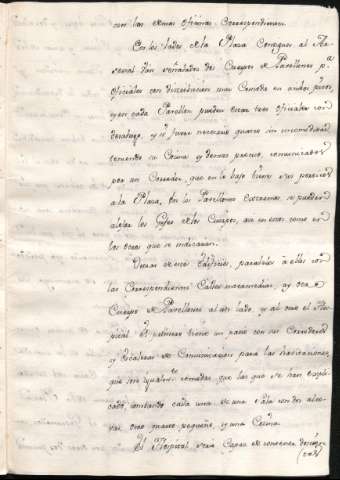 con las demas oficinas Correspondientes.
En los lados de la Plaza Contiguos al Ar-
senal dan señalados dos Cuerpos de Pavellones p.ª
Oficiales con distribucion muy Comoda en ambos pisos,
y en cada Pavellon pueden estar tres oficiales con
desahogo, y si fuese necesario quatro sin incomodidad
teniendo su Cocina y demas preciso, comunicados
por un Corredor, que en lo bajo tiene sus
a la Plaza, en los Pavellones extremos se pueden
alojar los Gefes de los Cuerpos, asi en estos como en
los otros que se indicarán.
Detras de este Edificio, paralelos a ellos con
las Correspondientes Calles intermedias, ay otro
Cuerpo de Pavellones al un lado, y al otro el Hos-
pital. El primero tiene un patio con sus Corredores
y Escaleras de Comunicacion para las havitaciones,
que son iguales
cado, constando cada una de una Sala con dos alco-
vas, otro quarto pequeño, y una Cocina.
El Hospital será Capaz de contener doscien-
(tas